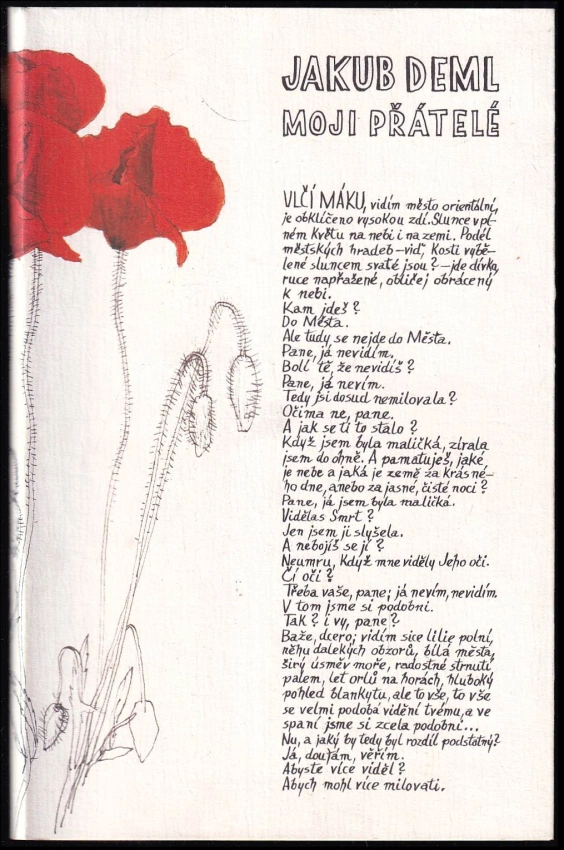 JAKUB DEML
MOJI PŘÁTELÉ
VLČÍ MÁKU, vidím město orientální,
je obklíčeno vysokou zdí. Slunce v pl-
ném květu na nebi i na zemi. Podél
městských hradeb – viď, kosti vybě-
lené sluncem svaté jsou? – jde dívka,
ruce napřažené, obličej obrácený
k nebi.
Kam jdeš?
Do Města.
Ale tudy se nejde do Města.
Pane, já nevidím.
Bolí tě, že nevidíš?
Pane, já nevím.
Tedy jsi dosud nemilovala?
Očima ne, pane.
A jak se ti to stalo?
Když jsem byla maličká, zírala
jsem do ohně. A pamatuješ, jaké
je nebe a jaká je země za krásné-
ho dne, anebo za jasné, čisté noci?
Pane, já jsem byla maličká.
Vidělas Smrt?
Jen jsem ji slyšela.
A nebojíš se jí?
Neumru, když mne viděly Jeho oči.
Čí oči?
Třeba vaše, pane; já nevím, nevidím.
V tom jsme si podobni.
Tak? i vy, pane?
Baže, dcero; vidím sice lilie polní,
něhu dalekých obzorů, bílá města,
širý úsměv moře, radostné strnutí
palem, let orlů na horách, hluboký
pohled blankytu, ale to vše, to vše
se velmi podobá vidění tvému, a ve
spaní jsme si zcela podobni...
Nu, a jaký by tedy byl rozdíl podstatný?
Já, doufám, věřím.
Abyste více viděl?
Abych mohl více milovati.